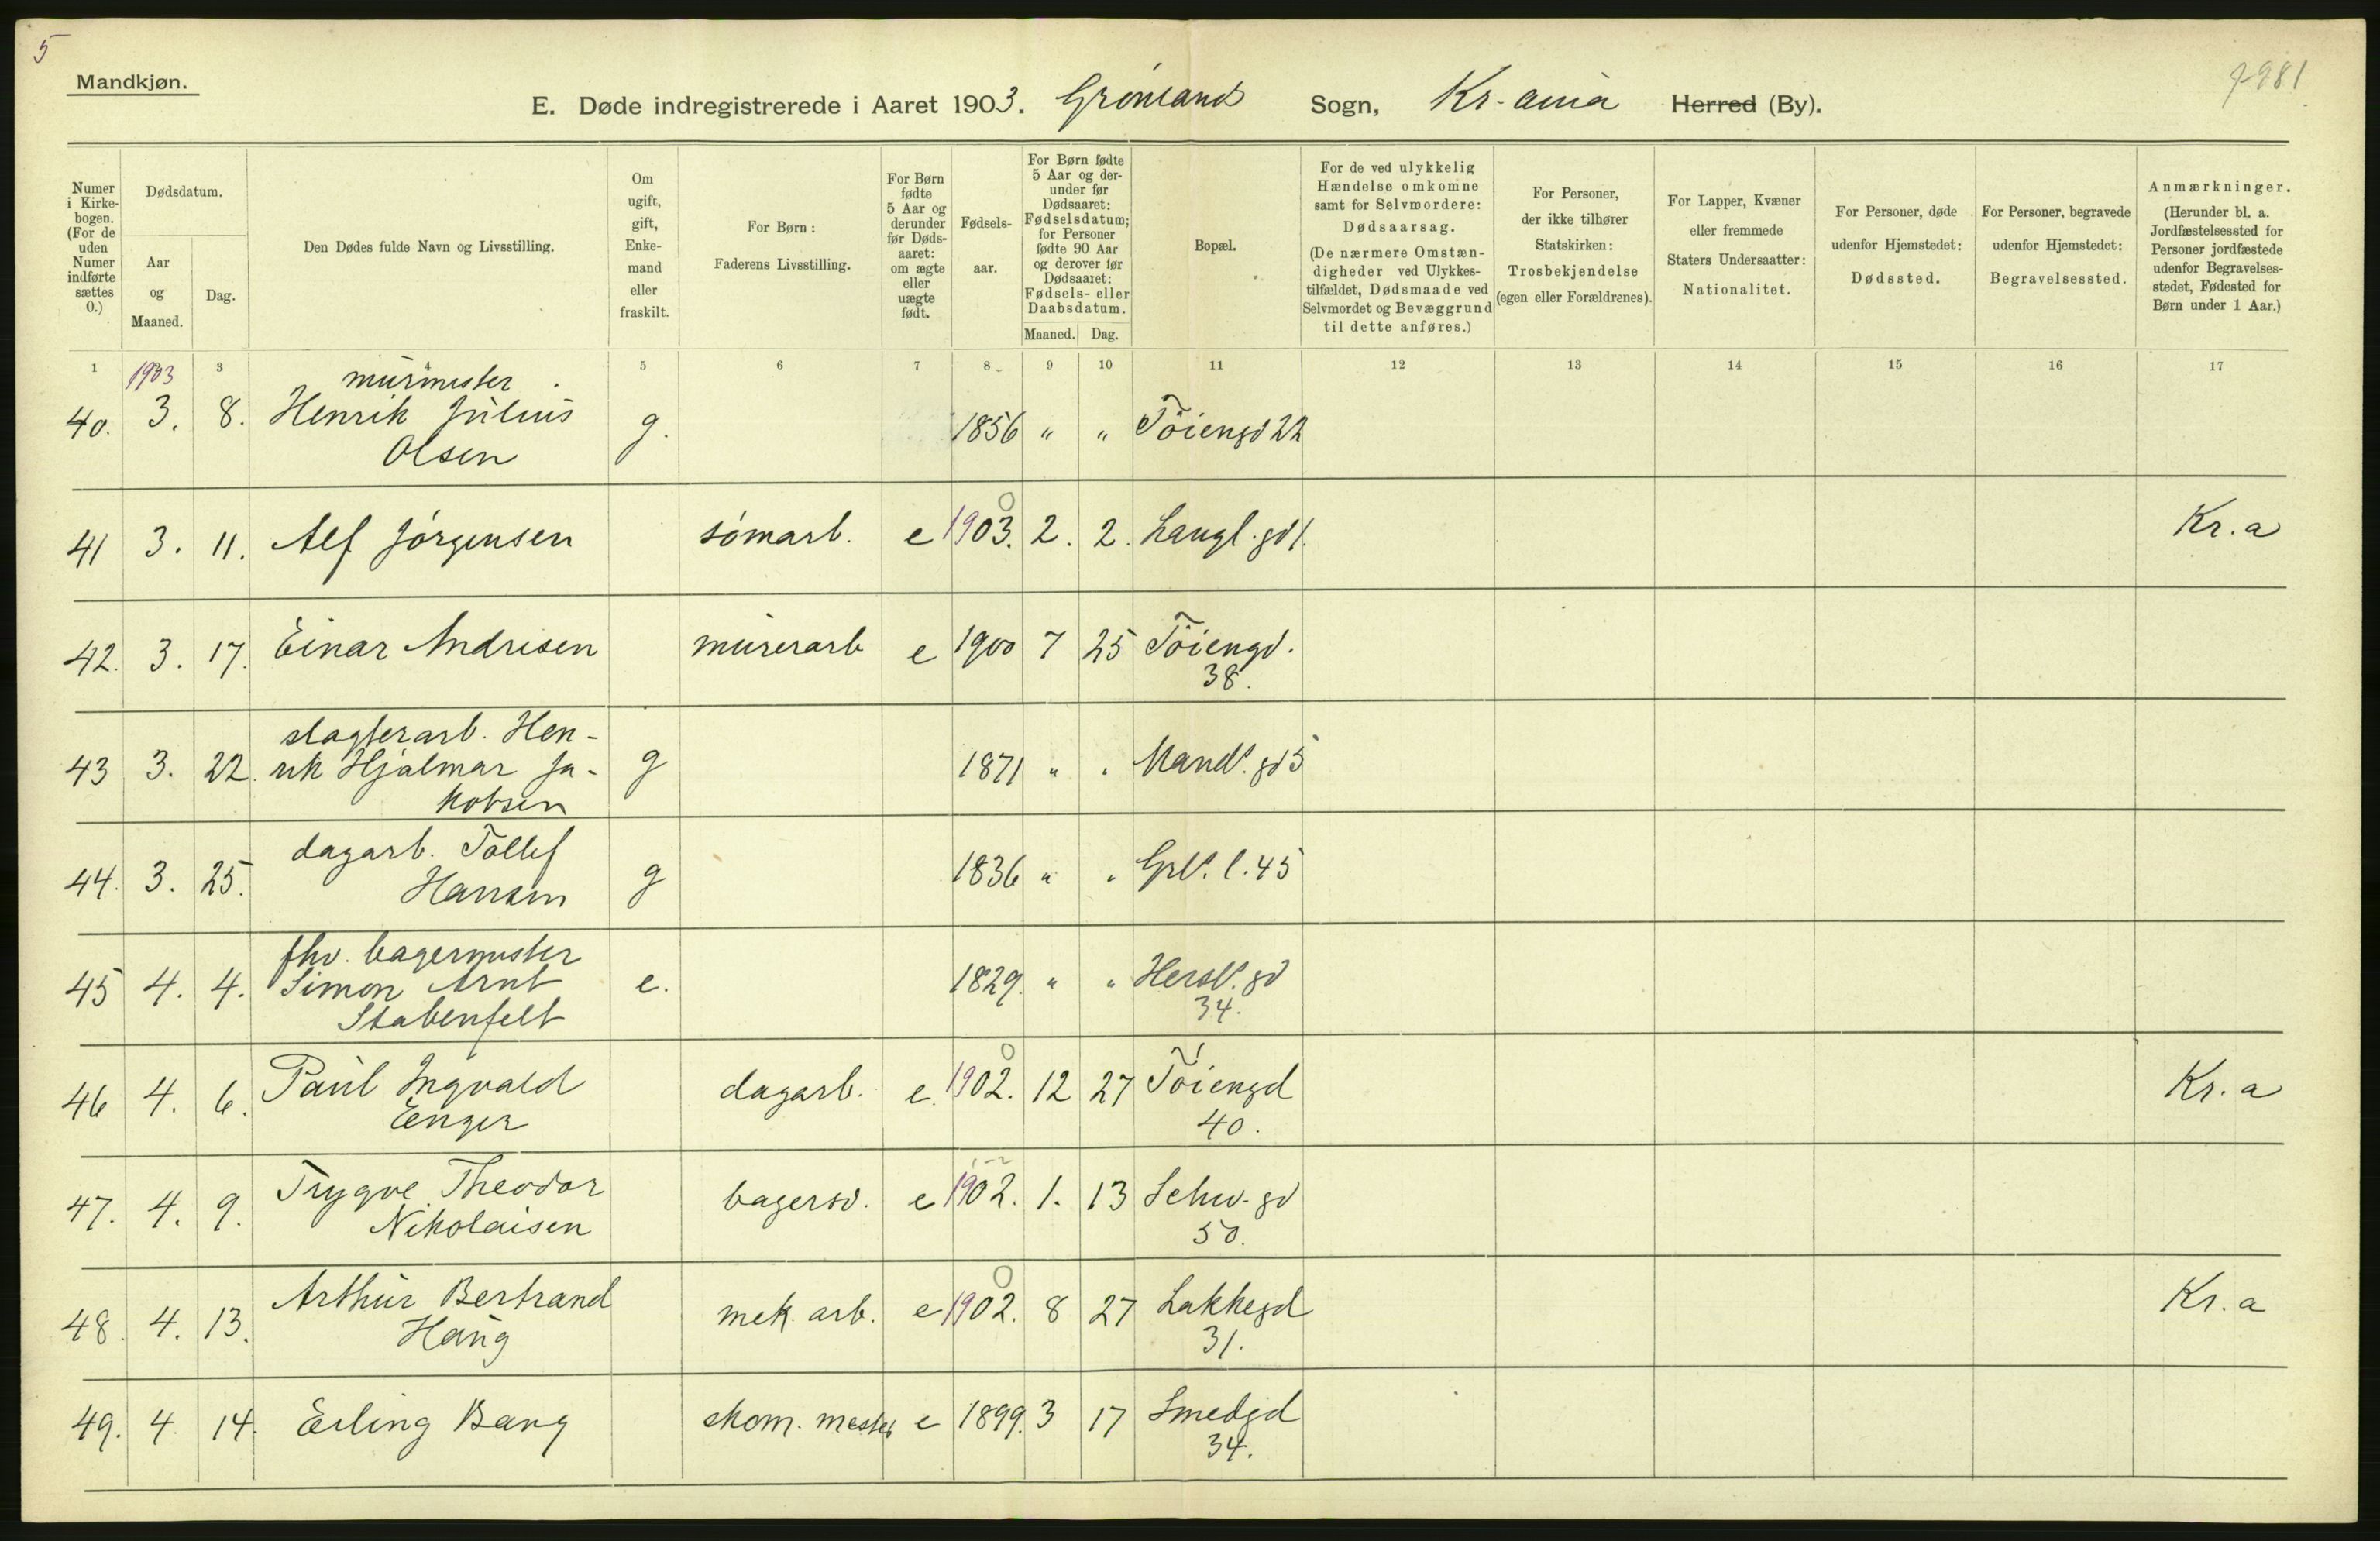 5
Mandkjøn.
7-981
E. Døde indregistrerede i Aaret 1903. Grønlands Sogn, Kr-ania Herred (By).
Numer i Kirkebogen. (For de uden Numer indførte sættes 0.)
Dødsdatum.
Aar og Maaned.
Dag.
Den Dødes fulde Navn og Livsstilling.
Om ugift, gift, Enkemand eller fraskilt.
For Børn: Faderens Livsstilling.
For Børn fødte 5 Aar og derunder før Dødsaaret: om ægte eller uægte født.
Fødselsaar.
For Børn fødte 5 Aar og derunder før Dødsaaret: Fødselsdatum; for Personer fødte 90 Aar og derover før Dødsaaret: Fødsels- eller Daabsdatum.
Maaned. Dag.
Bopæl.
For de ved ulykkelig Hændelse omkomne samt for Selvmordere: Dødsaarsag. (De nærmere Omstændigheder ved Ulykkestilfældet, Dødsmaade ved Selvmordet og Bevæggrund til dette anføres.)
For Personer, der ikke tilhører Statskirken: Trosbekjendelse (egen eller Forældrenes).
For Lapper, Kvæner eller fremmede Staters Undersaatter: Nationalitet.
For Personer, døde udenfor Hjemstedet: Dødssted.
For Personer, begravede udenfor Hjemstedet: Begravelsessted.
Anmærkninger. (Herunder bl. a. Jordfæstelsessted for Personer jordfæstede udenfor Begravelsesstedet, Fødested for Børn under 1 Aar.)
1 3 4 5 6 7 8 9 10 11 12 13 14 15 16 17
1903
murmester
40. 3. 8. Henrik Julius g. 1856 " " Töiengd 22
Olsen
41 3. 11. Alf Jörgensen sömarb. e 1903. 2. 2. Langl. gd 1. Kr.a
42. 3. 17. Einar Andresen murerarb e 1900 7 25 Töiengd.
38.
slagterarb. Hen-
43 3. 22. rik Hjalmar Ja- g 1871 " " Mandl. gd 5
kobsen
dagarb. Tollef
44. 3. 25. Hansen g 1836 " " Grl. l. 45
fhv. bagermester
45 4. 4. Simon Arnt e. 1829. " " Hersl. gd
Stabenfelt 34.
46 4. 6. Paul Ingvald dagarb. e. 1902. 12 27 Töiengd Kr. a
Enger 40.
47. 4. 9. Trygve Theodor bagersv. e 1902. 1. 13 Schw. gd
Nikolaisen 50.
48. 4. 13. Arthur Bertrand mek. arb. e 1902. 8 27 Lakkegd Kr. a
Haug 31.
49. 4. 14. Erling Bang skom. mester e 1899. 3 17 Smedgd
34.